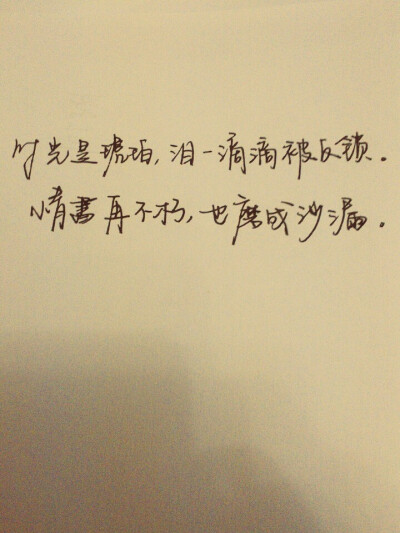 时光是琥珀，泪一滴滴被反锁。
情書再不朽，也磨成沙漏。